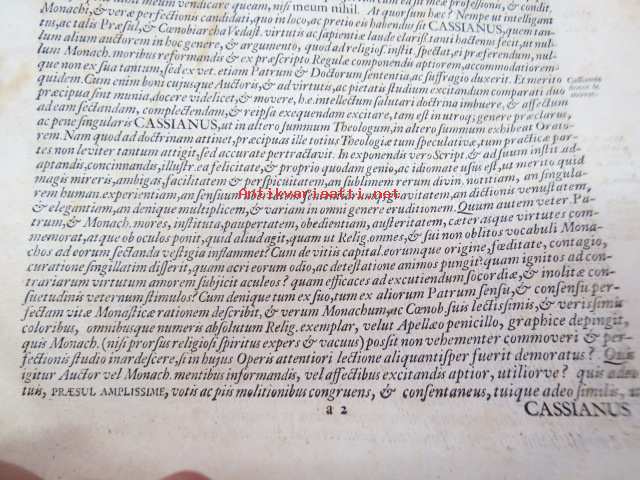 meum vendicare queam, nisi meum nihil. At quorsum hæc? Nempe ut intelligant
Monachi, & veræ perfectionis candidati, quo in loco, ac pretio eis habendus sit CASSIANUS, quem tan-
tus, ac talis Præsul, & Cœnobiarcha Vedast. virtutis ac sapientiæ laude clariss. tanti hactenus fecit, ut nul-
lum alium auctorem in hoc genere, & argumento, quod ad religios. instit. spectat, ei præferendum, nul-
lum Monach. moribus reformandis & ex præscripto Regulæ componendis aptiorem, accommodatiorem-
que non ex sua tantum, sed ex vet. etiam Patrum & Doctorum sententia, ac suffragio duxerit. Et merito
quidem. Cum enim boni cujusque Auctoris, & ad virtutis, ac pietatis studium excitandum comparati duo
præcipua sint munia, docere videlicet, & movere, h.e. intellectum salutari doctrina imbuere, & affectum
ad eam sectandam, complectendam, & reipsa exequendam excitare, tam est in utroq; genere præclarus,
ac pene singularis CASSIANUS, ut in altero summum Theologum, in altero summum exhibeat Orato-
rem. Nam quod ad doctrinam attinet, præcipuas ille totius Theologiæ tum speculativæ, tum practicæ par-
tes non leviter tantum attigit, sed accurate pertractavit. In exponendis vero Script. & ad suum instit. ad-
aptandis, concinnandis, illustr. ea felicitate, & proprio quodam genio, ac idiomate usus est, ut merito quid
magis mireris, ambigas, facilitatem & perspicuitatem, an sublimem rerum divin. notitiam, an singula-
rem human. experientiam, an sensuum ubertatem, in sermonibus gravitatem, an dictionis venustatem,
Antikvariaatti.net
& elegantiam, an denique multiplicem, & variam in omni genere eruditionem. Quum autem veter. Pa-
trum, & Monach. mores, instituta, paupertatem, obedientiam, austeritatem, cæterasque virtutes com-
memorat, atque ob oculos ponit, quid aliud agit, quam ut Relig. omnes, & sui non oblitos vocabuli Mona-
chos ad eorum sectanda vestigia inflammet? Cum de vitiis capital. eorumque origine, fœditate, contagio,
curatione singillatim disserit, quam acri eorum odio, ac detestatione animos pungit? quam ignitos ad con-
trariarum virtutum amorem subjicit aculeos? quam efficaces ad excutiendum socordiæ, & inolitæ con-
suetudinis veternum stimulos? Cum denique tum ex suo, tum ex aliorum Patrum sensu, & consensu per-
fectam vitæ Monasticæ rationem describit, & verum Monachum, ac Cœnob. suis lectissimis, & verissimis
coloribus, omnibusque numeris absolutum Relig. exemplar, velut Apellæo penicillo, graphice depingit,
quis Monach. (nisi prorsus religiosi spiritus expers & vacuus) possit non vehementer commoveri & per-
fectionis studio inardescere, si in hujus Operis attentiori lectione aliquantisper fuerit demoratus? Quis
igitur Auctor vel Monach. mentibus informandis, vel affectibus excitandis aptior, utiliorve? quis adeo
tuis, PRÆSUL AMPLISSIME, votis ac piis molitionibus congruens, & consentaneus, tuique adeo similis,
a 2
CASSIANUS